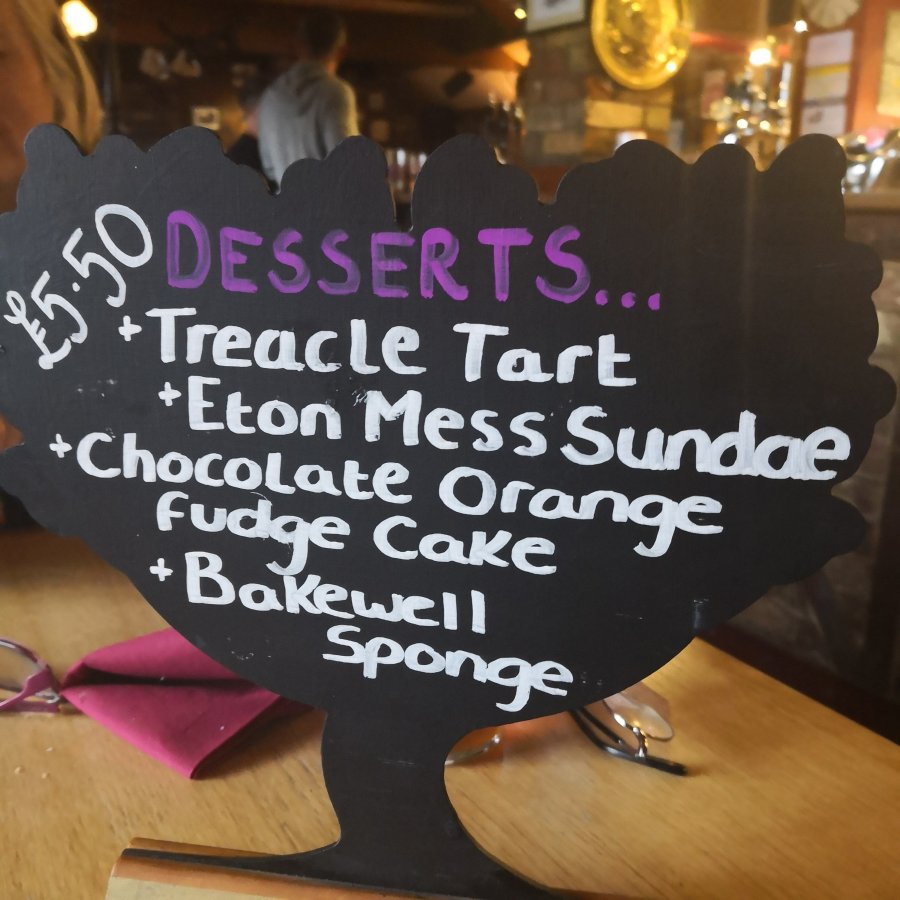 £5.50
DESSERTS...
+ Treacle Tart
+ Eton Mess Sundae
+ Chocolate Orange
Fudge Cake
+ Bakewell
Sponge